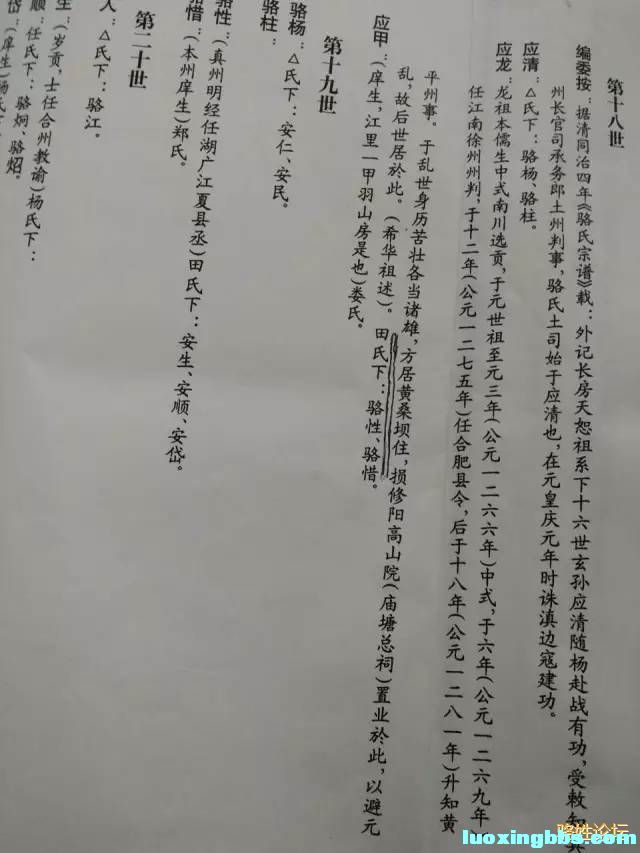 第十八世
编委按：据清同治四年《骆氏宗谱》载：外记长房天恕祖系下十六世玄孙应清随杨赴战有功，受敕知其
州长官司承务郎土州判事，骆氏土司始于应清也，在元皇庆元年时诛滇边寇建功。
应清：△氏下：骆杨、骆柱。
应龙：龙祖本儒生中式南川选贡，于元世祖至元三年（公元一二六六年）中式，于六年（公元一二六九年）
任江南徐州州判，于十二年（公元一二七五年）任合肥县令，后于十八年（公元一二八一年）升知黄
平州事。于乱世身历苦壮各当诸雄，方居黄桑坝住，损修阳高山院（庙塘总祠）置业於此，以避元
乱，故后世居於此。（希华祖述）。田氏下：骆性、骆惜。
应甲：（庠生，江里一甲羽山房是也）娄氏。
第十九世
骆杨：△氏下：安仁、安民。
骆柱：
骆性：（真州明经任湖广江夏县丞）田氏下：安生、安顺、安岱。
骆惜：（本州庠生）郑氏。
第二十世
人：△氏下：骆江。
生：（岁贡，士任合州教谕）杨氏下：
顺：任氏下：骆炯、骆炤。
岱：（庠生）杨氏下
骆姓论坛
luoxingbbs.com